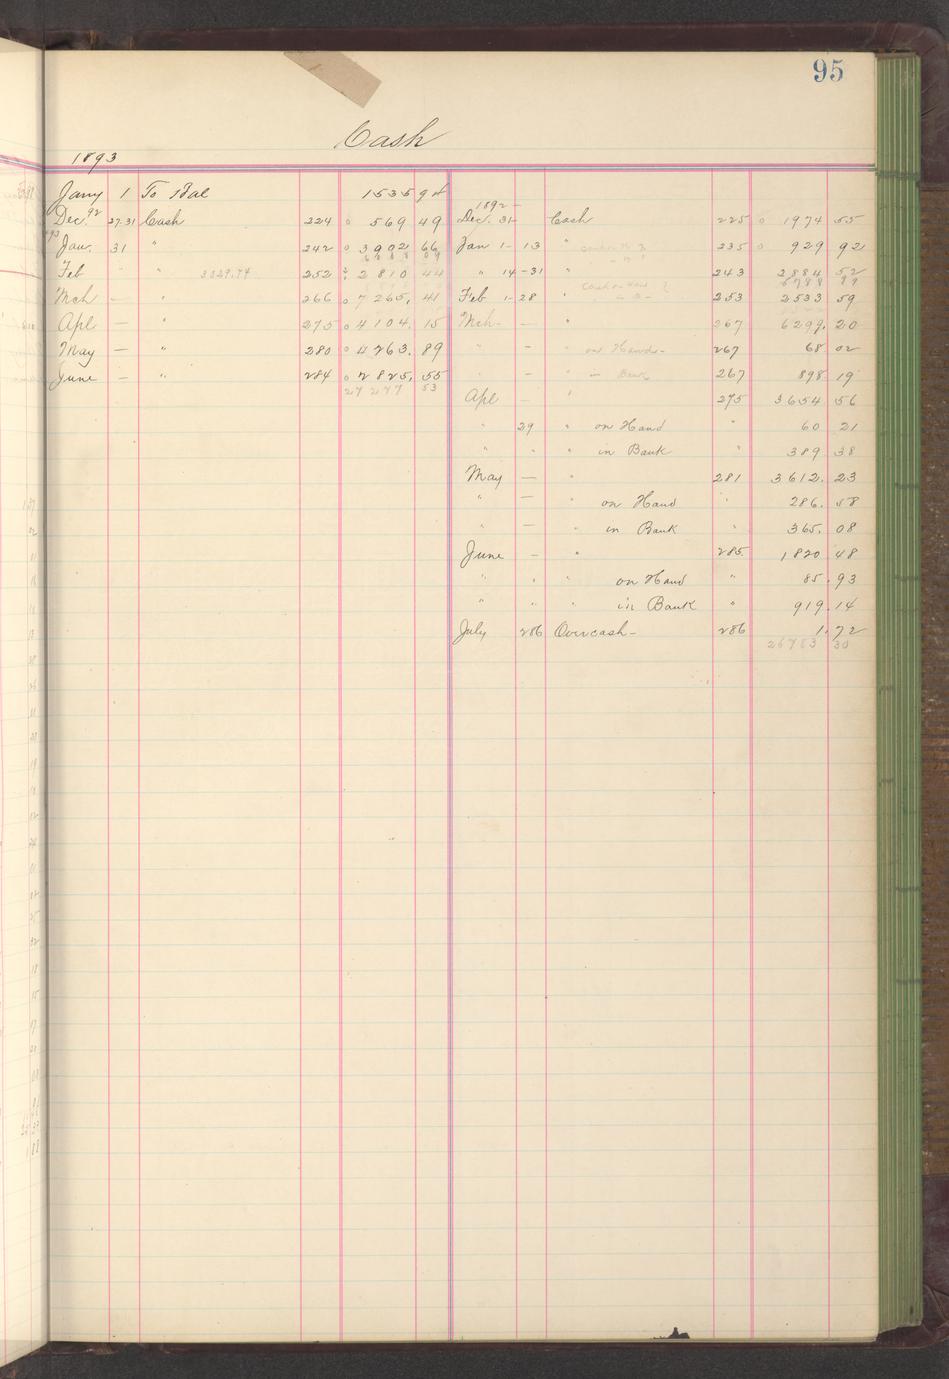 95
Cash
1893
Jany 1 To Bal 1535 94
1892
Dec. 92 27-31 Cash 224 569 49 Dec. 31 Cash 225 1974 55
93 Jan. 31 " 242 3902 66 Jan 1-13 " 235 929 92
Feb " " 3029.74 252 2810 44 " 14-31 " 243 2884 52
6788 89
Mch — " 266 7265. 41 Feb 1-28 " 253 2533 59
Apl — " 275 4104. 15 Mch — " 267 6299. 20
May — " 280 4263. 89 " — " on Hand- 267 68 02
June — " 284 2825. 55 " — " in Bank 267 898 19
27 277 53
Apl — " 275 3654 56
" 29 " on Hand " 60 21
" " " in Bank " 389 38
May — " 281 3612. 23
" — " on Hand " 286. 58
" — " in Bank " 365. 08
June — " 285 1820 48
" " " on Hand " 85. 93
" " " in Bank " 919. 14
July 286 Overcash- 286 1. 72
26783 30